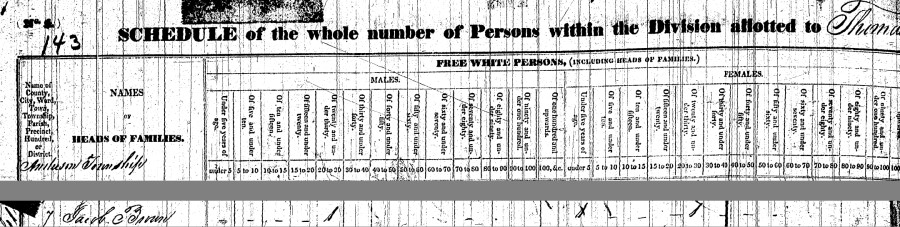 143
SCHEDULE of the whole number of Persons within the Division allotted to Thomas
FREE WHITE PERSONS, (INCLUDING HEADS OF FAMILIES.)
MALES. FEMALES.
Name of County, City, Ward, Town, Township, Parish, Precinct, Hundred, or District.
NAMES
OF
HEADS OF FAMILIES.
Under five years of age.
Of five and under ten.
Of ten and under fifteen.
Of fifteen and under twenty.
Of twenty and under thirty.
Of thirty and under forty.
Of forty and under fifty.
Of fifty and under sixty.
Of sixty and under seventy.
Of seventy and under eighty.
Of eighty and under ninety.
Of ninety and under one hundred.
Of one hundred and upwards.
Under five years of age.
Of five and under ten.
Of ten and under fifteen.
Of fifteen and under twenty.
Of twenty and under thirty.
Of thirty and under forty.
Of forty and under fifty.
Of fifty and under sixty.
Of sixty and under seventy.
Of seventy and under eighty.
Of eighty and under ninety.
Of ninety and under one hundred.
Anderson Township
under 5 5 to 10 10 to 15 15 to 20 20 to 30 30 to 40 40 to 50 50 to 60 60 to 70 70 to 80 80 to 90 90 to 100 100, &c. under 5 5 to 10 10 to 15 15 to 20 20 to 30 30 to 40 40 to 50 50 to 60 60 to 70 70 to 80 80 to 90 90 to 100
7 Jacob Brown 1 1 1